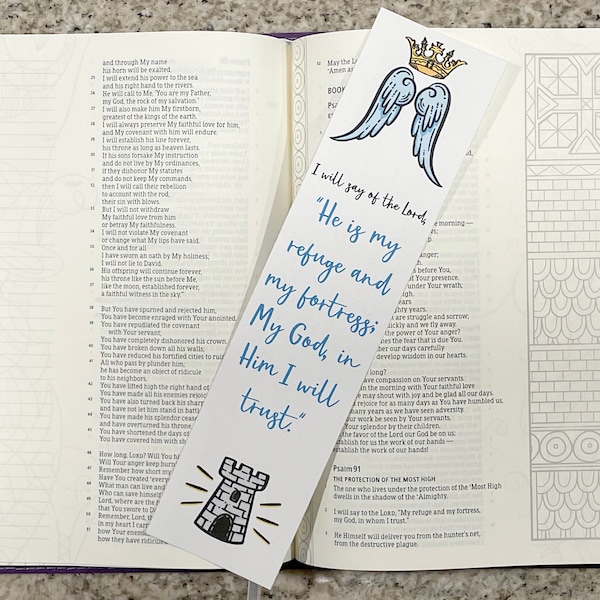 and through My name
his horn will be exalted.
25 I will extend his power to the sea
and his right hand to the rivers.
26 He will call to Me, 'You are my Father,
my God, the rock of my salvation.'
27 I will also make him My firstborn,
greatest of the kings of the earth.
28 I will always preserve My faithful love for him,
and My covenant with him will endure.
29 I will establish his line forever,
his throne as long as heaven lasts.
30 If his sons forsake My instruction
and do not live by My ordinances,
31 if they dishonor My statutes
and do not keep My commands,
32 then I will call their rebellion
to account with the rod,
their sin with blows.
33 But I will not withdraw
My faithful love from him
or betray My faithfulness.
34 I will not violate My covenant
or change what My lips have said.
35 Once and for all
I have sworn an oath by My holiness;
I will not lie to David.
36 His offspring will continue forever,
his throne like the sun before Me,
37 like the moon, established forever,
a faithful witness in the sky."
38 But You have spurned and rejected him;
You have become enraged with Your anointed.
39 You have repudiated the covenant
with Your servant;
You have completely dishonored his crown.
40 You have broken down all his walls;
You have reduced his fortified cities to
41 All who pass by plunder him;
he has become an object of ridicule
to his neighbors.
42 You have lifted high the right hand of
You have made all his enemies
43 You have also turned back his sharp
and have not let him stand in
44 You have made his splendor
and have overturned his throne
45 You have shortened the days of
You have covered him with
46 How long, LORD? Will You
Will Your anger keep
47 Remember how short my
Have You created
48 What man can live and
Who can save himself
49 Lord, where are the
that You swore to
50 Remember, Lord, the
in my heart I
51 how Your enemies
how they have ridiculed
I will say of the Lord,
"He is my
refuge and
my fortress;
My God, in
Him I will
trust."
May the L
"Amen a
BOOK
Psa
morning —
anger;
before You,
Your presence.
under Your wrath;
are struggle and sorrow;
quickly and we fly away.
the power of Your anger?
the fear that is due You.
our days carefully
develop wisdom in our hearts.
long?
compassion on Your servants.
morning with Your faithful love
may shout with joy and be glad all our days.
many days as You have humbled us,
many years as we have seen adversity.
work be seen by Your servants,
Your splendor by their children.
the favor of the Lord our God be on us;
establish for us the work of our hands—
establish the work of our hands!
Psalm 91
THE PROTECTION OF THE MOST HIGH
1 The one who lives under the protection of the Most High
dwells in the shadow of the Almighty.
2 I will say to the LORD, "My refuge and my fortress,
my God, in whom I trust."
3 He Himself will deliver you from the hunter's net,
from the destructive plague.